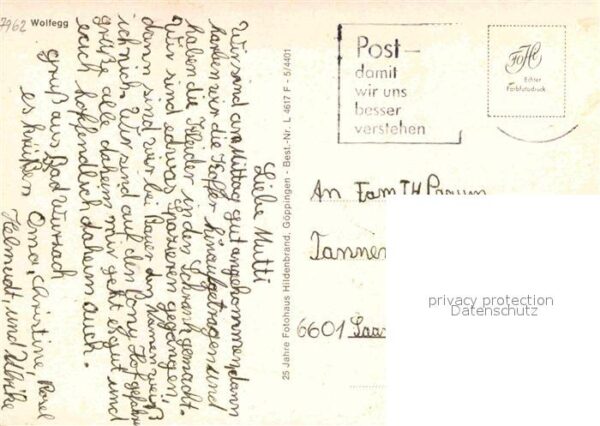 7962 Wolfegg
Liebe Mutti
Wir sind am Mittag gut angekommen, dann
haben wir die Koffer hinaufgetragen und
haben die Kleider in den Schrank gemacht.
Wir sind etwas spazieren gegangen,
dann sind wir bei Bauer den Namen weiß
ich nich. Wir sind auf den Pony Hof gefahren
grüße alle daheim mir geht es gut und
euch hoffendlich daheim auch.
gruß aus Bad Wurzach
es grüßen Oma, Christine, Rosel
Helmudt, und Ulrike
25 Jahre Fotohaus Hildenbrand, Göppingen - Best.-Nr. L 4617 F - 5/4401
Post -
damit
wir uns
besser
verstehen
FOHI
Echter
Farbfotodruck
An Fam TH
Tannen
6601 Saar
privacy protection
Datenschutz